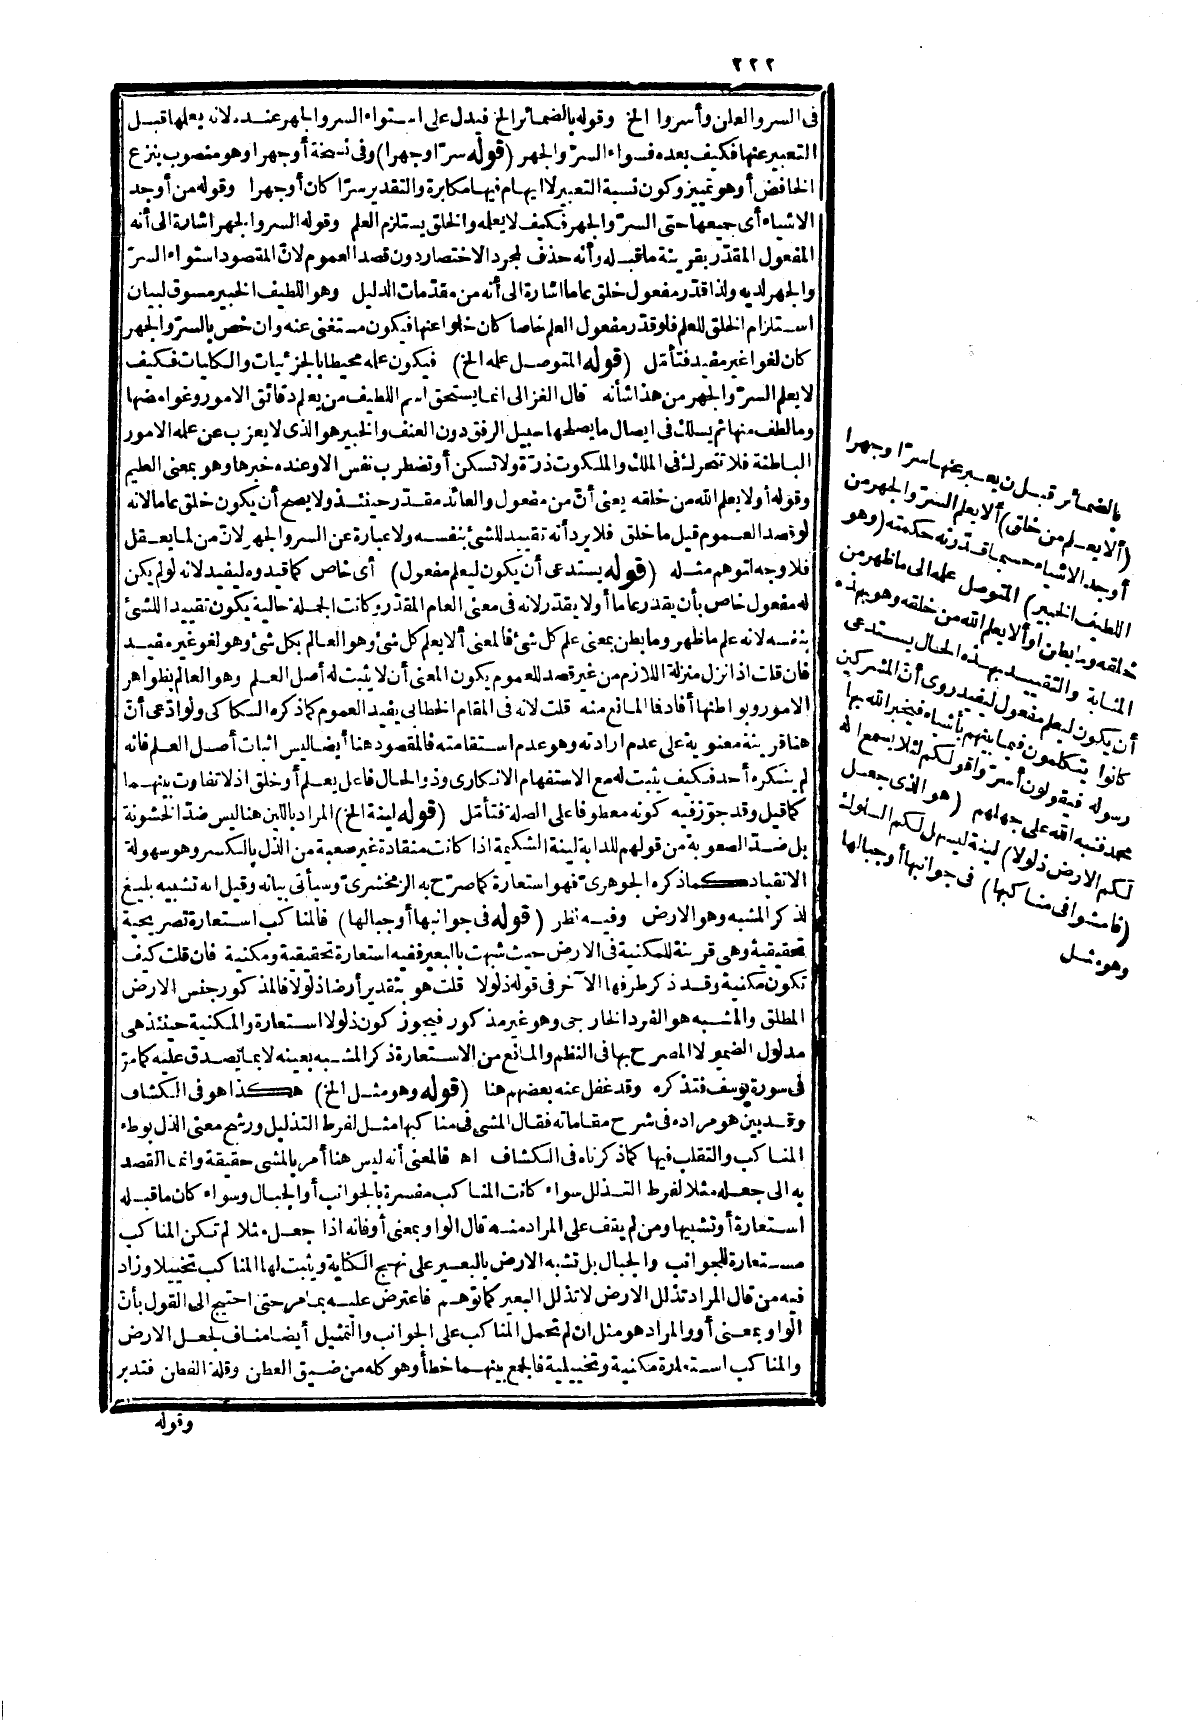 ٢٢٢
فى السر والعلن وأسروا الخ وقوله بالضمائر الخ فيدل على استواء السر والجهر عنده لانه يعلمها قبل
التعبير عنها فكيف بعده فسواء السرّ والجهر (قوله سرّا وجهرا) وفى نسخة أوجهرا وهو منصوب بنزع
الخافض أو هو تمييز وكون نسبة التعبير لا ايهام فيها مكابرة والتقدير سرّا كان أوجهرا وقوله من أوجد
الاشياء أى جميعها حتى السرّ والجهر فكيف لا يعلمه والخلق يستلزم العلم وقوله السر والجهر اشارة الى أنه
المفعول المقدّر بقرينة ما قبله وأنه حذف لمجرد الاختصار دون قصد العموم لانّ المقصود استواء السرّ
والجهر لديه ولذا قدّر مفعول خلق عاما اشارة الى أنه من مقدّمات الدليل وهو اللطيف الخبير مسوق لبيان
استلزام الخلق للعلم فلو قدّر مفعول العلم خاصا كان خلوا عنها فيكون مستغنى عنه وان خص بالسرّ والجهر
كان لغوا غير مفيد فتأمّل (قوله المتوصل علمه الخ) فيكون علمه محيطا بالجزئيات والكليات فكيف
لا يعلم السرّ والجهر من هذا شأنه قال الغزالى انما يستحق اسم اللطيف من يعلم دقائق الامور وغوامضها
وما لطف منها ثم يسلك فى ايصال ما يصلحها سبيل الرفق دون العنف والخبير هو الذى لا يعزب عن علمه الامور
الباطنة فلا تتحرك فى الملك والملكوت ذرّة ولا تسكن أو تضطرب نفس الا وعنده خبرها وهو بمعنى العليم
وقوله أولا يعلم الله من خلقه يعنى أنّ من مفعول والعائد مقدّر حينئذ ولا يصح أن يكون خلق عاما لانه
لو قصد العموم قيل ما خلق فلا يرد أنه تقييد للشئ بنفسه ولا عبارة عن السر والجهر لانّ من لما يعقل
فلا وجه لتوهم مثله (قوله يستدعى أن يكون ليعلم مفعول) أى خاص كما قيدوه ليفيد لانه لو لم يكن
له مفعول خاص بأن يقدر عاما أولا يقدر لانه فى معنى العام المقدّر وكانت الجملة حالية يكون تقييدا للشئ
بنفسه لانه علم ما ظهر وما بطن بمعنى علم كل شئ فالمعنى ألا يعلم كل شئ وهو العالم بكل شئ وهو لغو غير مفيد
فان قلت اذا نزل منزلة اللازم من غير قصد للعموم يكون المعنى أن لا يثبت له أصل العلم وهو العالم بظواهر
الامور وبواطنها أفاد فا المانع منه قلت لانه فى المقام الخطابى يفيد العموم كما ذكره السكاكى ولو ادّعى أنّ
هنا قرينة معنوية على عدم ارادته وهو عدم استقامته فالمقصود هنا أيضا ليس اثبات أصل العلم فانه
لم ينكره أحد فكيف يثبت له مع الاستفهام الانكارى وذو الحال فاعل يعلم أو خلق اذ لا تفاوت بينهما
كما قيل وقد جوّز فيه كونه معطوفا على الصلة فتأمّل (قوله لينة الخ) المراد باللين هنا ليس ضدّ الخشونة
بل ضدّ الصعوبة من قولهم للدابة لينة الشكيمة اذا كانت منقادة غير صعبة من الذل بالكسر وهو سهولة
الانقياد كما ذكره الجوهرىّ فهو استعارة كما صرّح به الزمخشرىّ وسيأتى بيانه وقيل انه تشبيه بليغ
لذكر المشبه وهو الارض وفيه نظر (قوله فى جوانبها أوجبالها) فالمناكب استعارة تصريحية
تحقيقية وهى قرينة للمكنية فى الارض حيث شبهت بالبعير ففيه استعارة تحقيقية ومكنية فان قلت كيف
تكون مكنية وقد ذكر طرفها الآخر فى قوله ذلولا قلت هو بتقدير أرضا ذلولا فالمذكور جنس الارض
المطلق والمشبه هو الفرد الخارجى وهو غير مذكور فيجوز كون ذلولا استعارة والمكنية حينئذ هى
مدلول الضمير لا المصرح بها فى النظم والمانع من الاستعارة ذكر المشبه بعينه لا بما يصدق عليه كما مرّ
فى سورة يوسف فتذكره وقد غفل عنه بعضهم هنا (قوله وهو مثل الخ) هكذا هو فى الكشاف
وقد بين هو مراده فى شرح مقاماته فقال المشى فى مناكبها مثل لفرط التذليل ورشح معنى الذل بوطء
المناكب والتقلب فيها كما ذكرناه فى الكشاف اه فالمعنى أنه ليس هنا أمر بالمشى حقيقة وانما القصد
به الى جعله مثلا لفرط التذلل سواء كانت المناكب مفسرة بالجوانب أو الجبال وسواء كان ما قبله
استعارة أو تشبيها ومن لم يقف على المراد منه قال الواو بمعنى أو فانه اذا جعل مثلا لم تكن المناكب
مستعارة للجوانب والجبال بل تشبه الارض بالبعير على نهج الكناية ويثبت لها المناكب تخييلا وزاد
فيه من قال المراد تذلل الارض لا تذلل البعير كما توهم فاعترض عليه بما مر حتى احتيج الى القول بأنّ
الواو بمعنى أو والمراد هو مثل ان لم تحمل المناكب على الجوانب والتمثيل أيضا مناف لجعل الارض
والمناكب استعارة مكنية وتخييلية فالجمع بينهما خطأ وهو كله من ضيق العطن وقلة الفطن فتدبر
وقوله
بالضمائر قبل أن يعبر عنها سرّا وجهرا
(ألا يعلم من خلق) ألا يعلم السرّ والجهر من
أوجد الاشياء حسبما قدّرته حكمته (وهو
اللطيف الخبير) المتوصل علمه الى ما ظهر من
خلقه وما بطن أو ألا يعلم الله من خلقه وهو بهذه
المثابة والتقييد بهذه الحال يستدعى
أن يكون ليعلم مفعول ليفيد روى أنّ المشركين
كانوا يتكلمون فيما بينهم بأشياء فيخبر الله بها
رسوله فيقولون أسرّوا قولكم لئلا يسمع اله
محمد فنبه الله على جهلهم (هو الذى جعل
لكم الارض ذلولا) لينة ليسهل لكم السلوك
(فامشوا فى مناكبها) فى جوانبها أو جبالها
وهو مثل